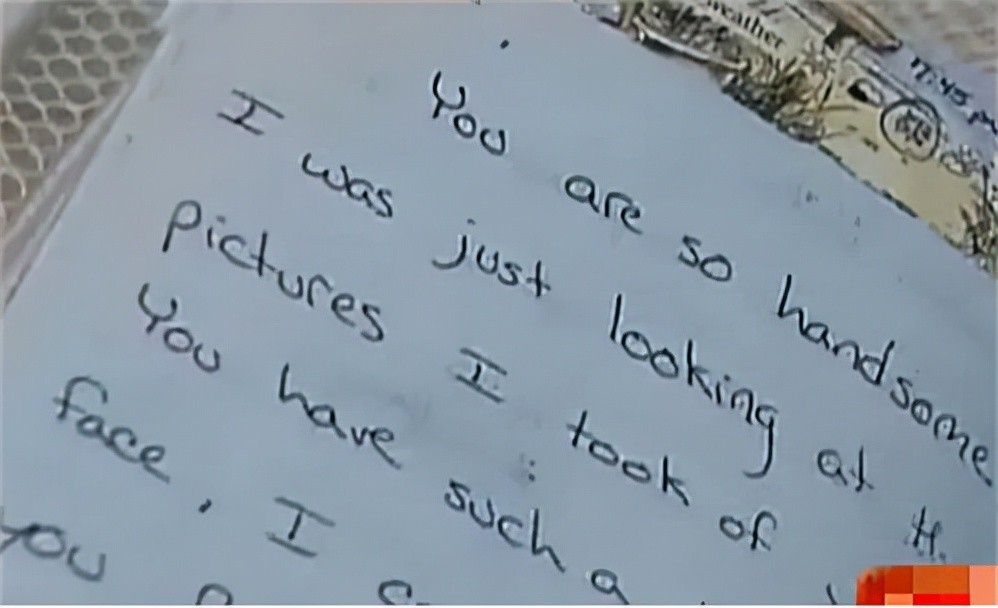 eather
17:45 pm
You are so handsome
I was just looking at
pictures I took of
You have such a
face, I
you